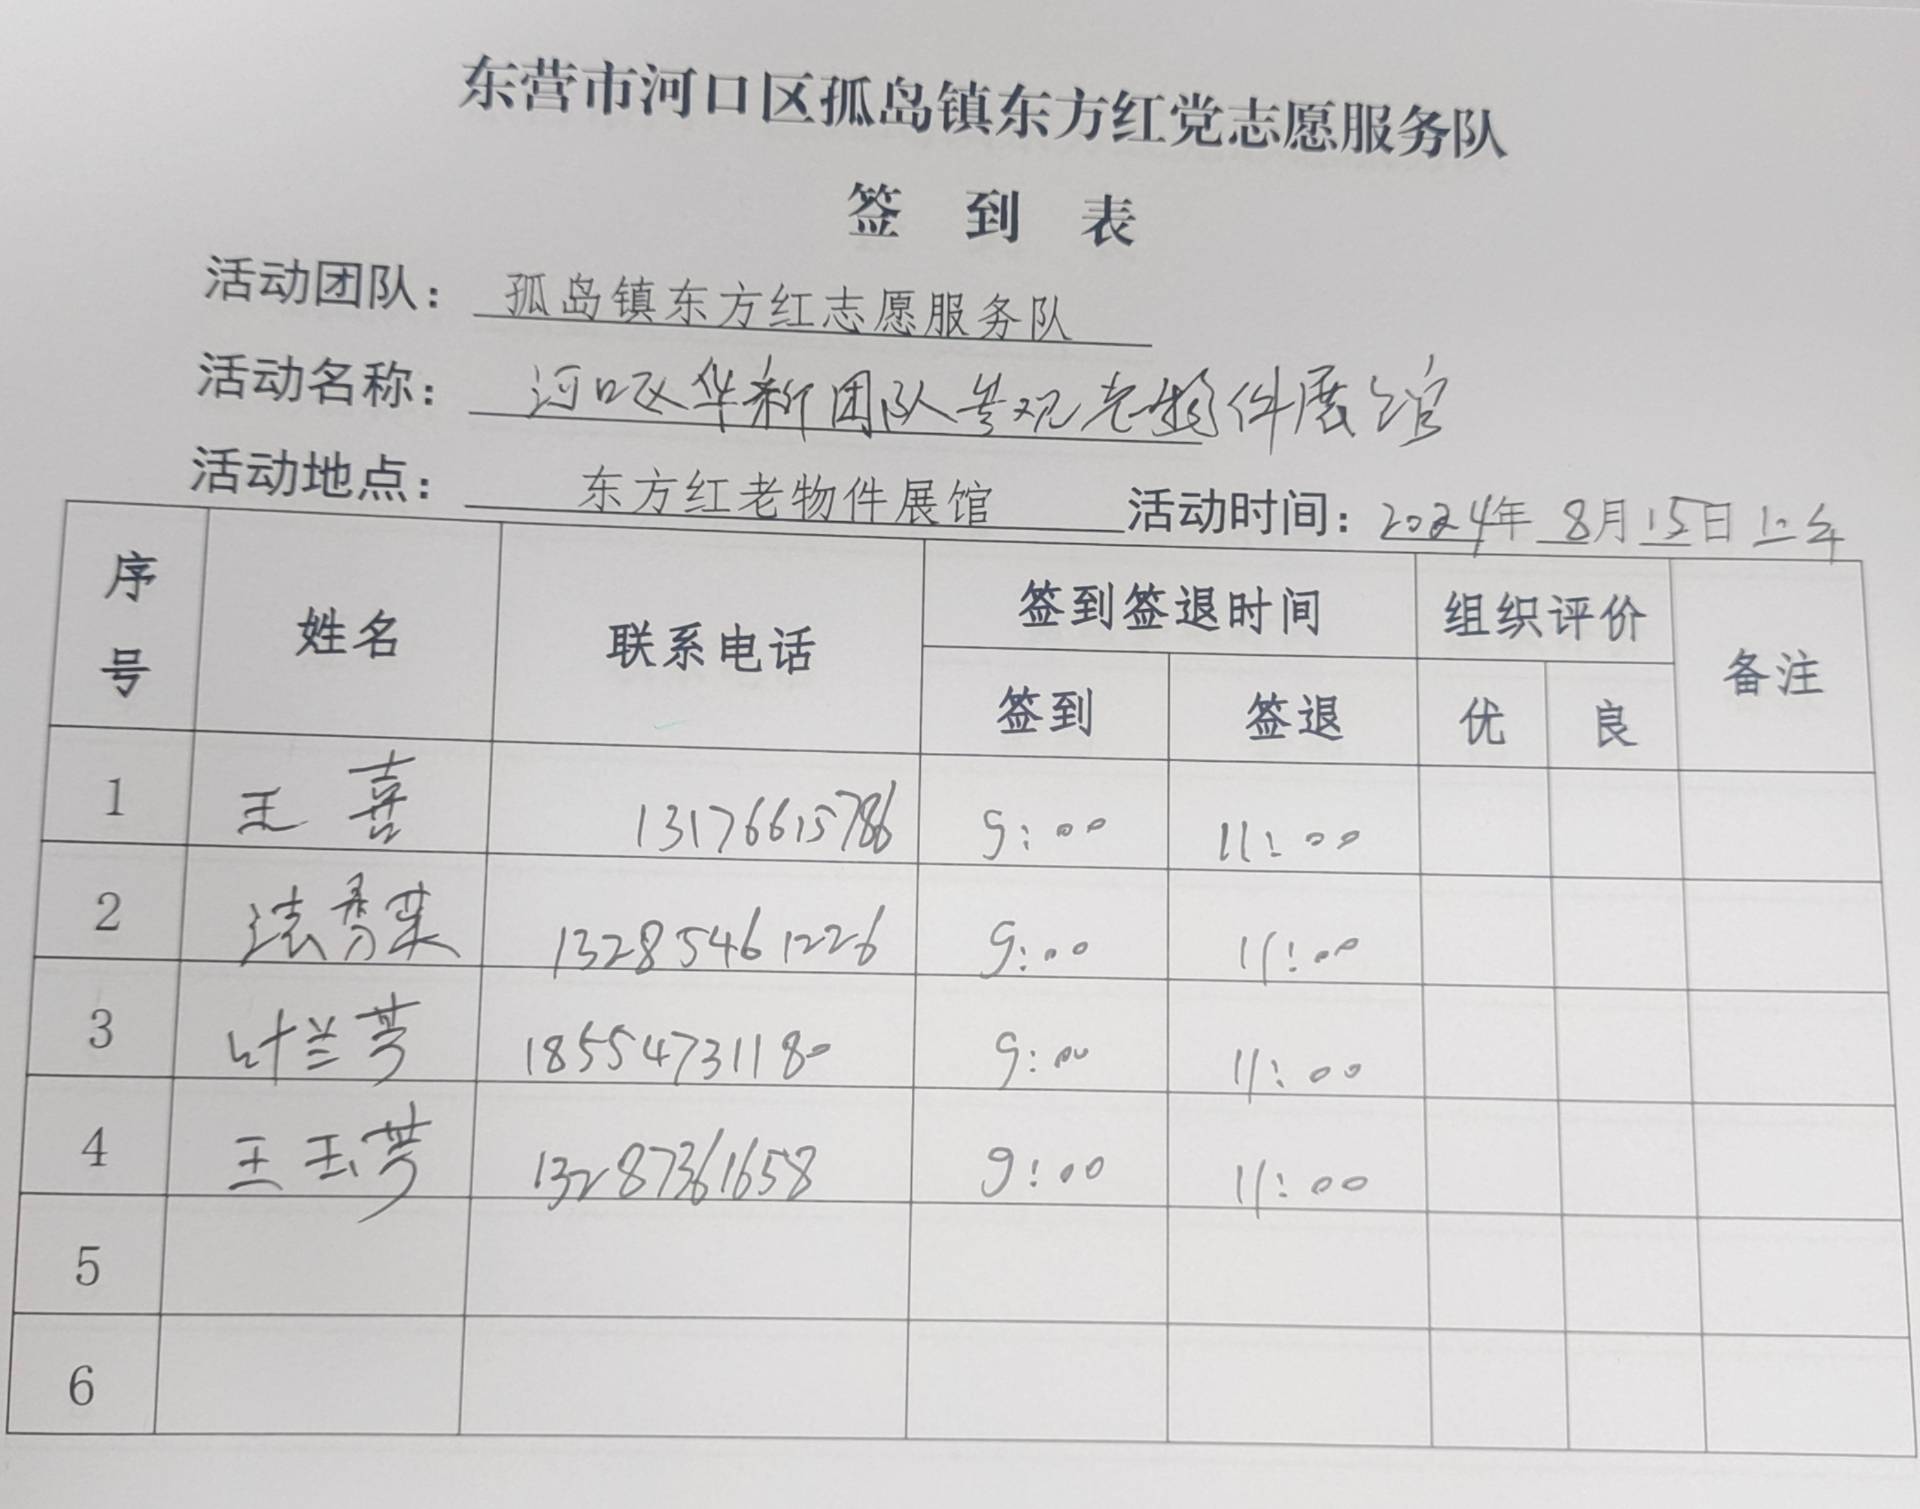 东营市河口区孤岛镇东方红党志愿服务队
签 到 表
活动团队： 孤岛镇东方红志愿服务队
活动名称： 河口区华新团队参观老物件展馆
活动地点： 东方红老物件展馆 活动时间：2024年 8月15日上午
序号 姓名 联系电话 签到签退时间 组织评价 备注
签到 签退 优 良
1 王喜 13176615786 9:00 11:00
2 秀荣 13285461226 9:00 11:00
3 叶兰芳 18554731180 9:00 11:00
4 王玉芳 13287361658 9:00 11:00
5
6